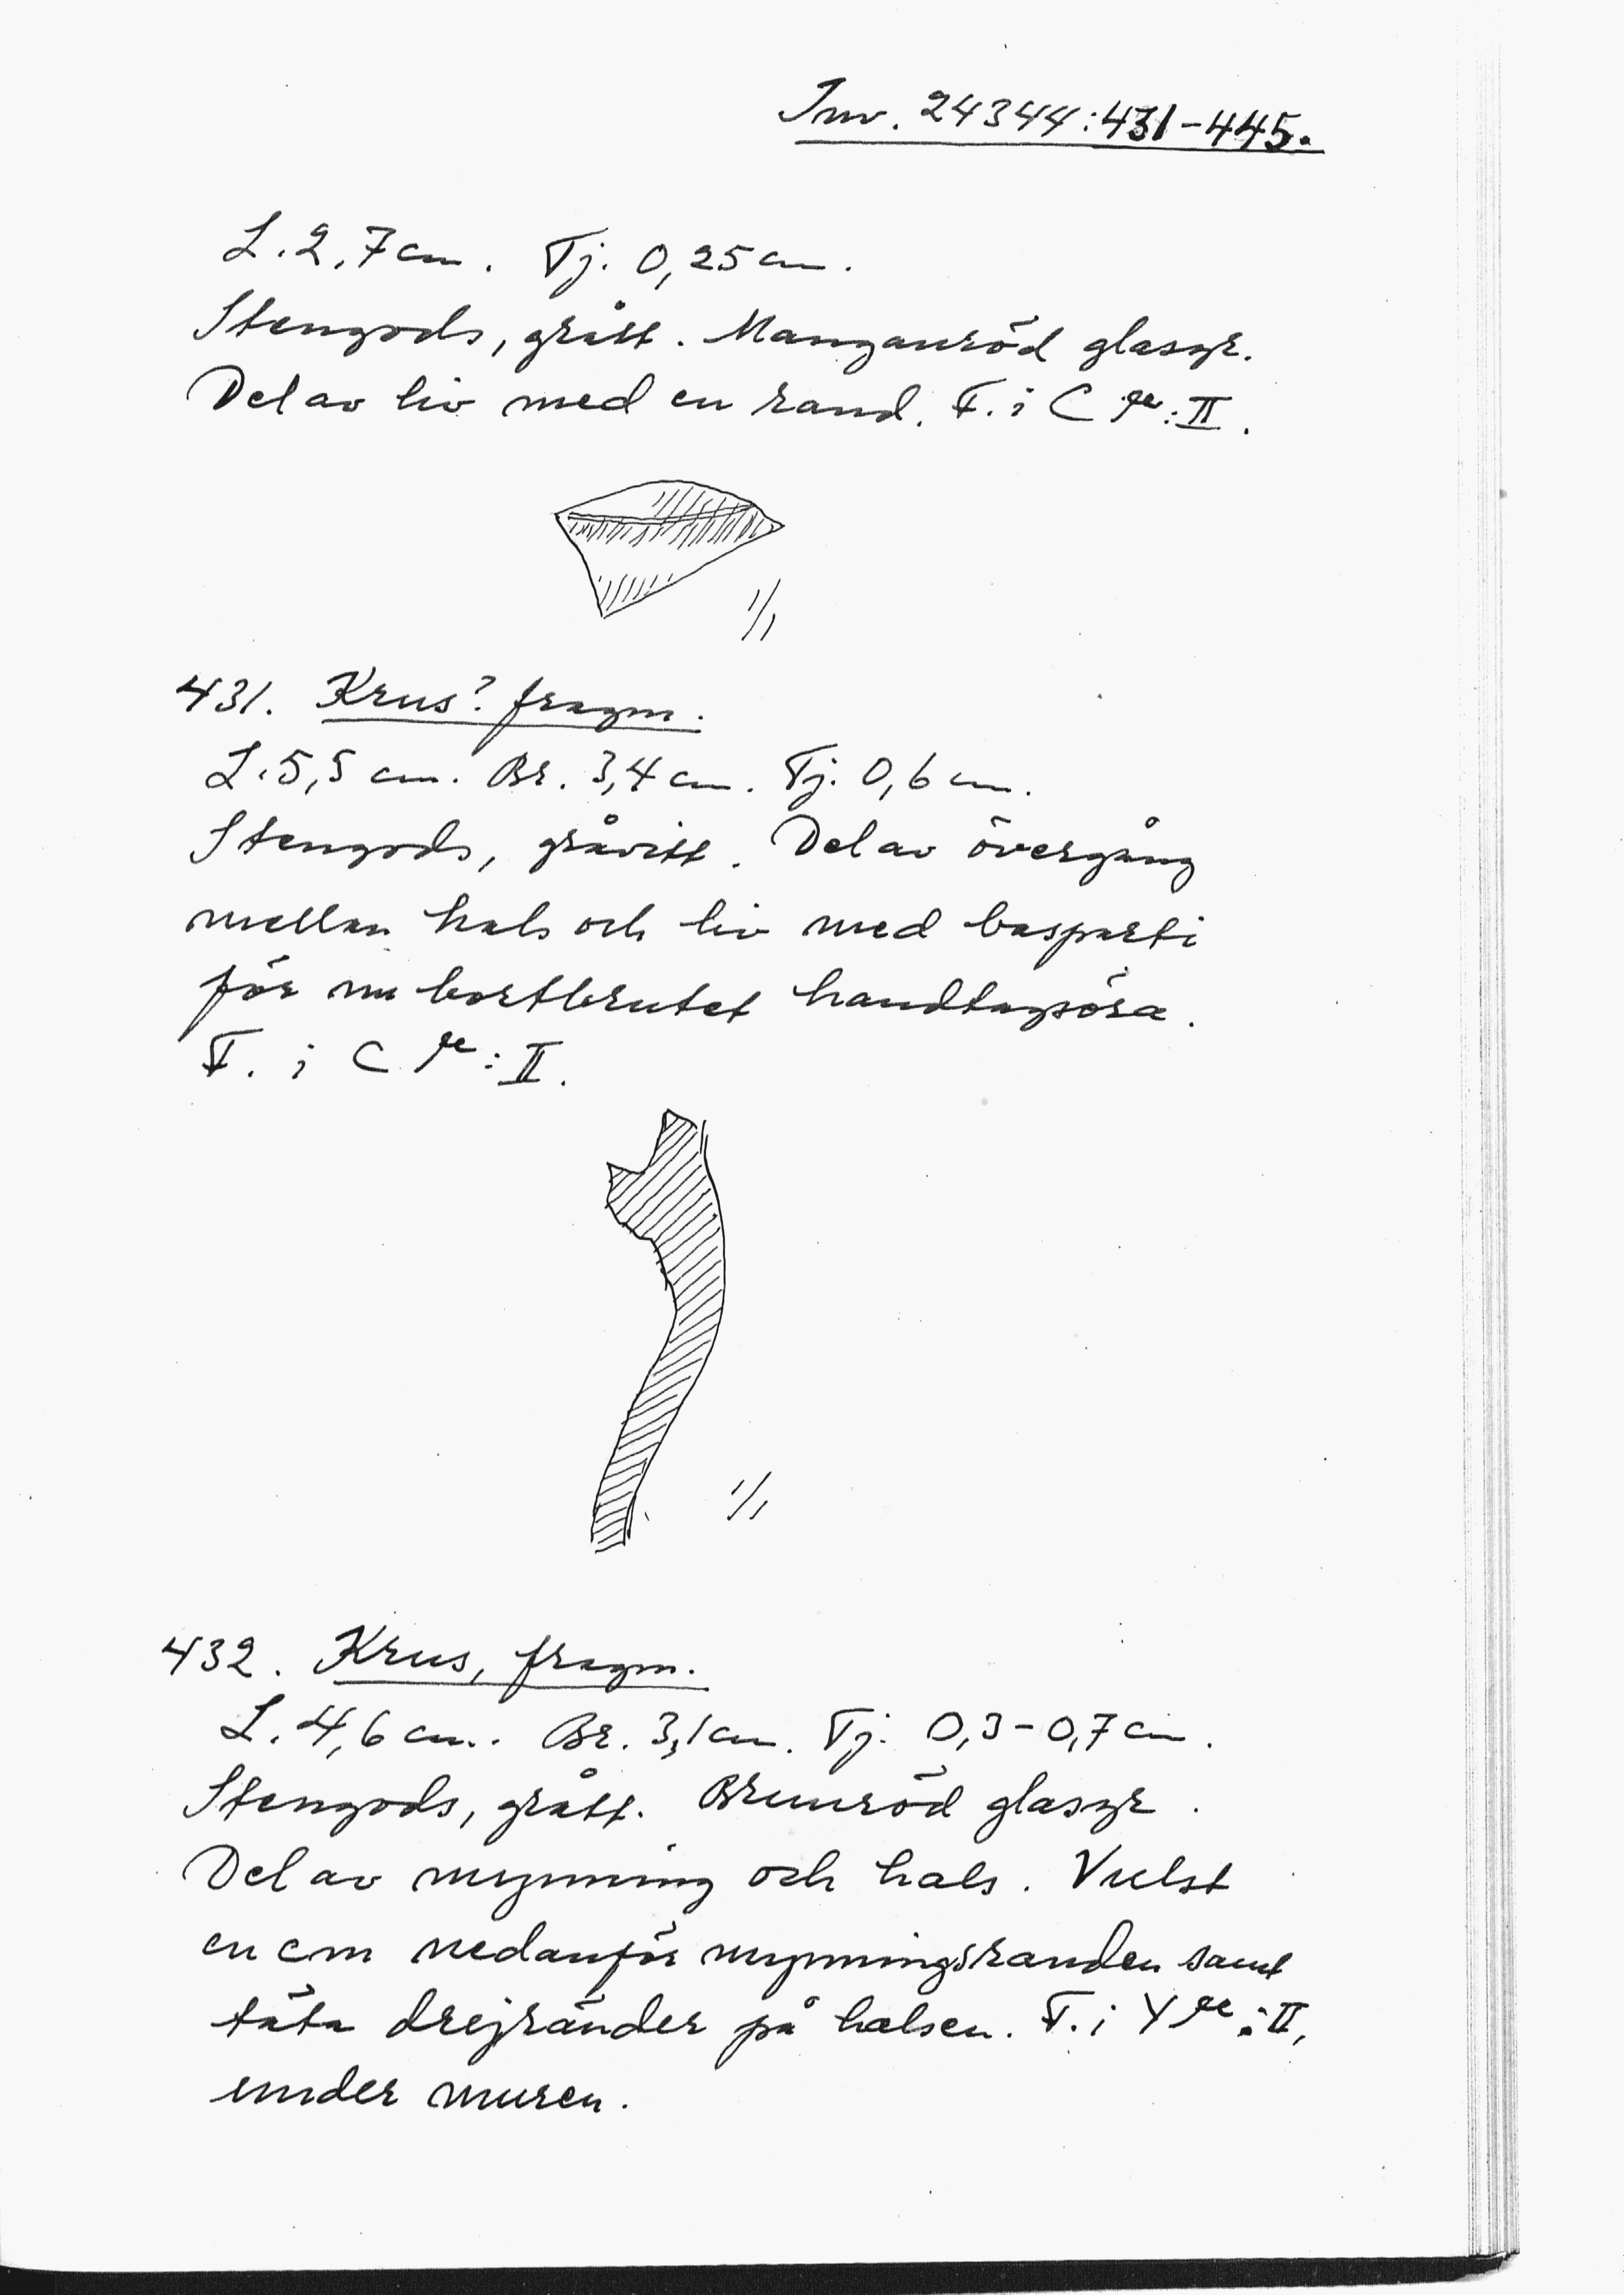 Inv. 24344:431-445.
L. 2,7 cm. Tj. 0,25 cm.
Stengods, grått. Manganröd glasyr.
Del av liv med en rand. F. i C :II.
1/1
431. Krus? fragm.
L. 5,5 cm. Br. 3,4 cm. Tj. 0,6 cm.
Stengods, gråvitt. Del av övergång
mellan hals och liv med basparti
för nu bortbrutet handtagsöra.
F. i C :II.
1/1
432. Krus, fragm.
L. 4,6 cm. Br. 3,1 cm. Tj. 0,3-0,7 cm.
Stengods, grått. Brunröd glasyr.
Del av mynning och hals. Vulst
en cm nedanför mynningsranden samt
täta drejränder på halsen. F. i Y :II,
under muren.